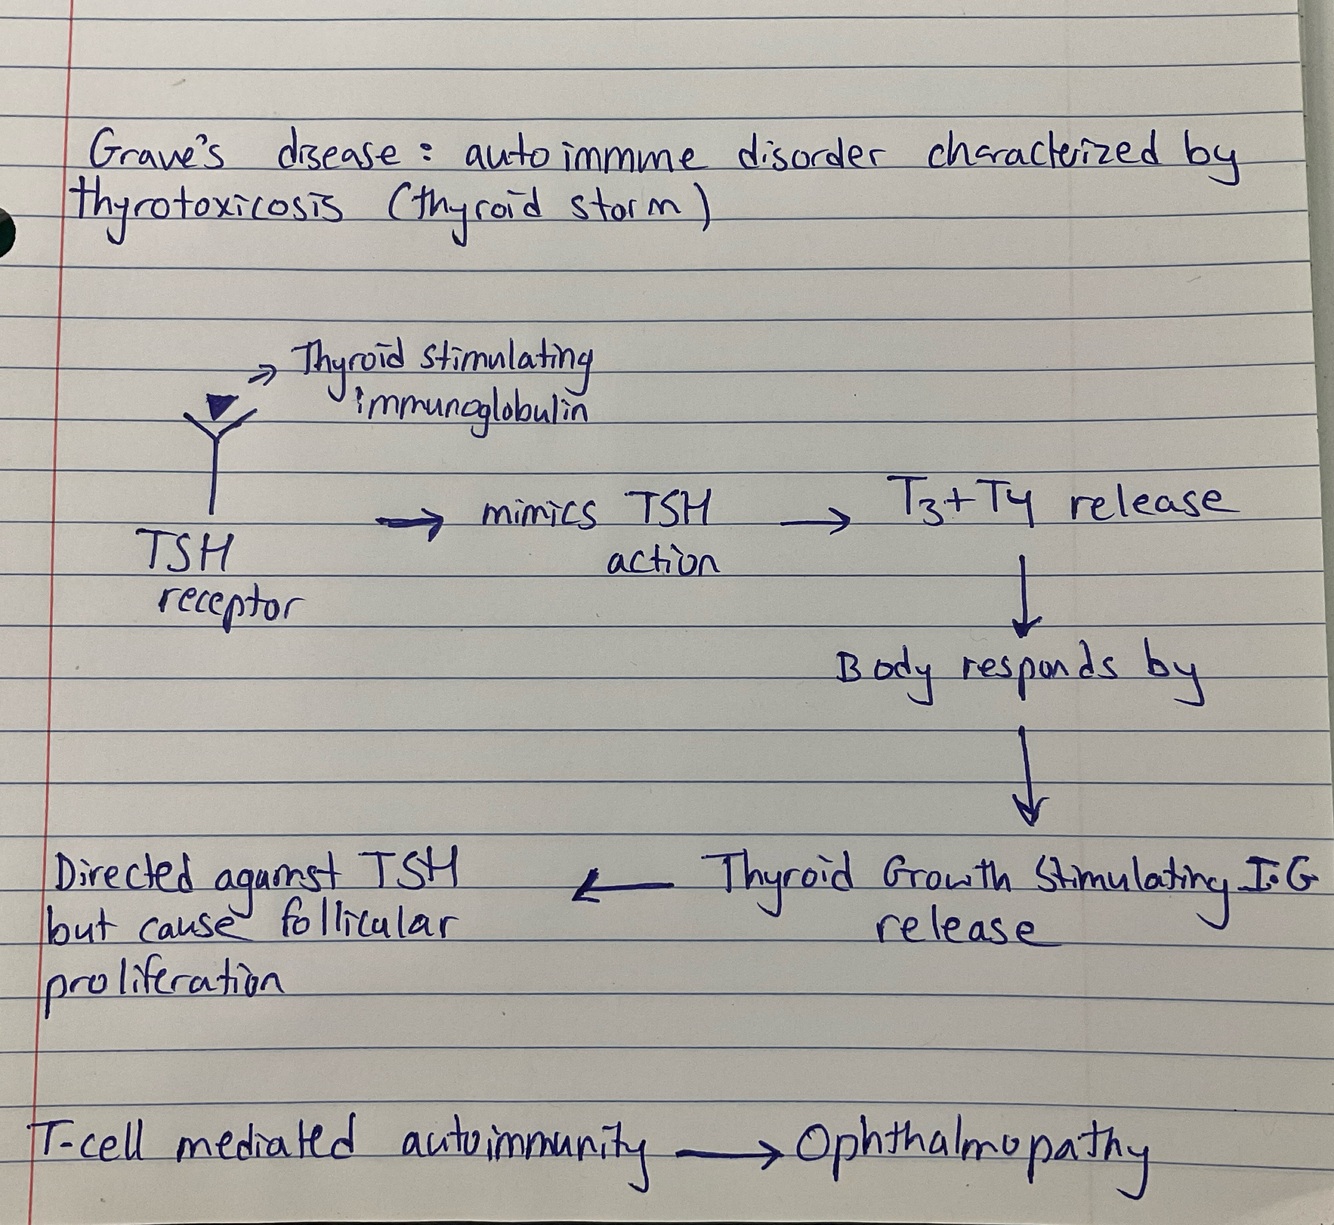 Grave's disease: autoimmune disorder characterized by
thyrotoxicosis (thyroid storm)
Thyroid stimulating
immunoglobulin
TSH
receptor
mimics TSH
action
T3+T4 release
Body responds by
Thyroid Growth Stimulating IG
release
Directed against TSH
but cause follicular
proliferation
T-cell mediated autoimmunity → Ophthalmopathy